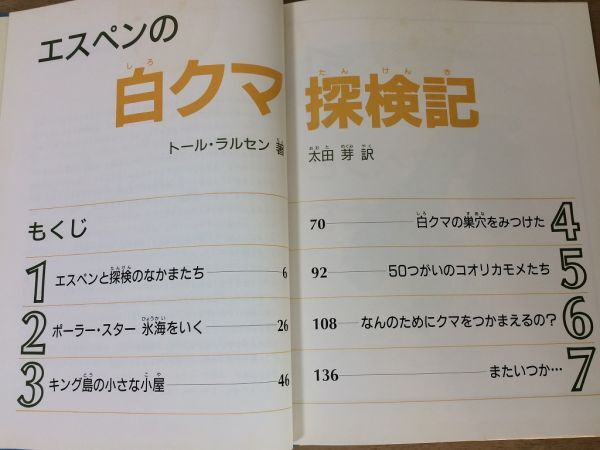 エスペンの
しろ たんけんき
白クマ探検記
トール・ラルセン 著
おおた めぐみ やく
太田 芽 訳
もくじ
1 エスペンと探検のなかまたち 6
2 ポーラー・スター 氷海をいく 26
3 キング島の小さな小屋 46
70 白クマの巣穴をみつけた 4
92 50つがいのコオリカモメたち 5
108 なんのためにクマをつかまえるの? 6
136 またいつか… 7